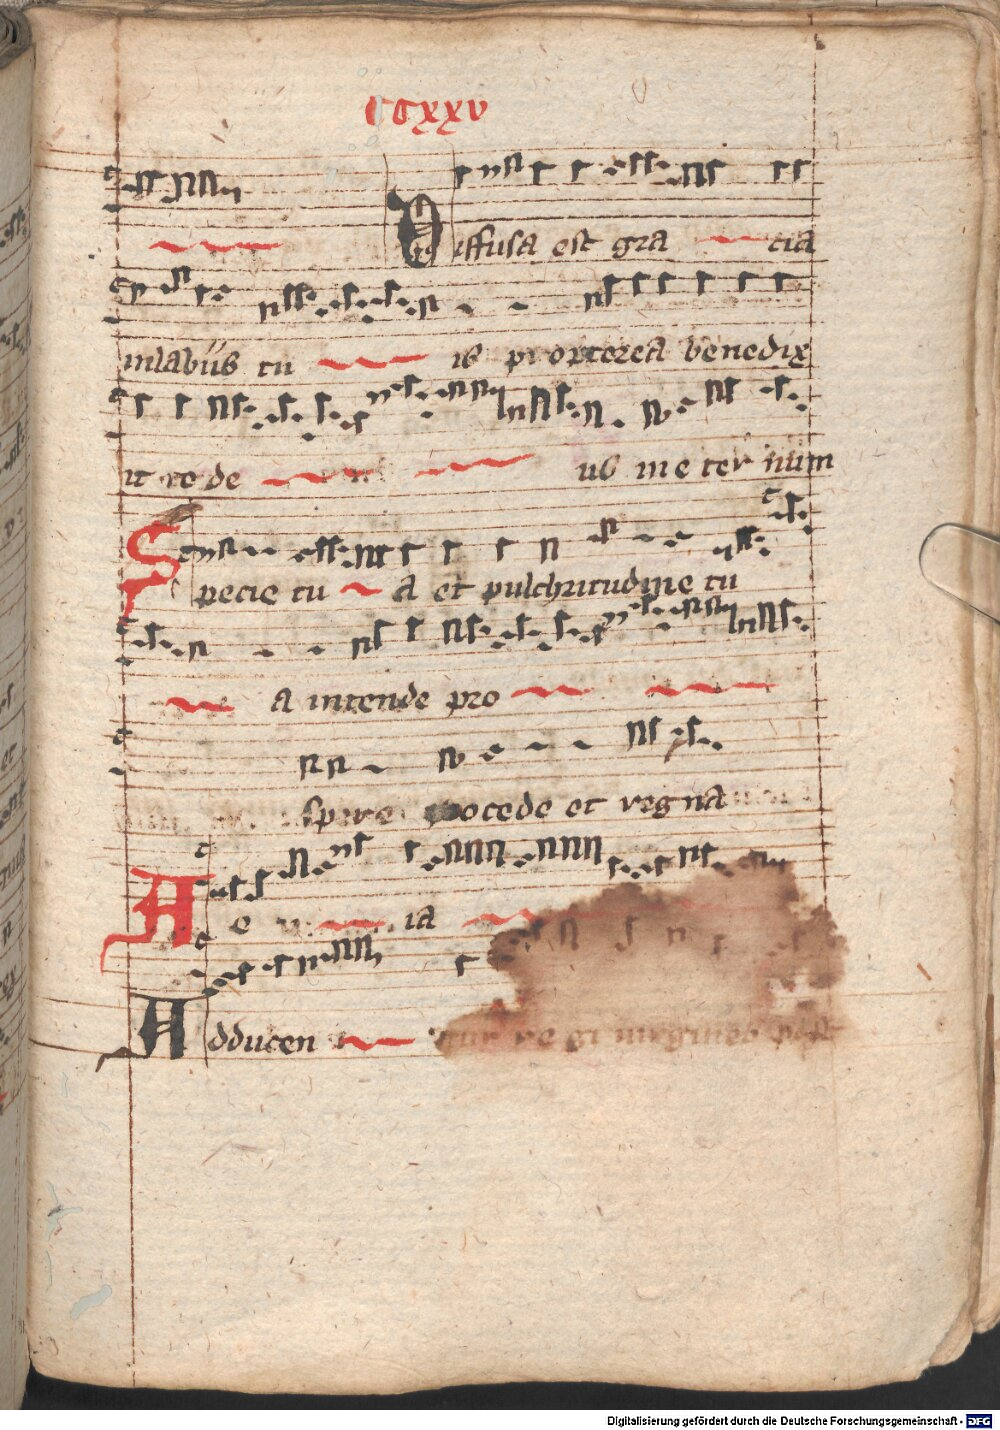 CCXXV
Diffusa est gra tia
in labiis tu is propterea benedix
it te de us in eternum
Specie tu a et pulchritudine tu
a intende pro
spere procede et regna
A e u ia
Adducen t tur regi virgines post
Digitalisierung gefördert durch die Deutsche Forschungsgemeinschaft - DFG